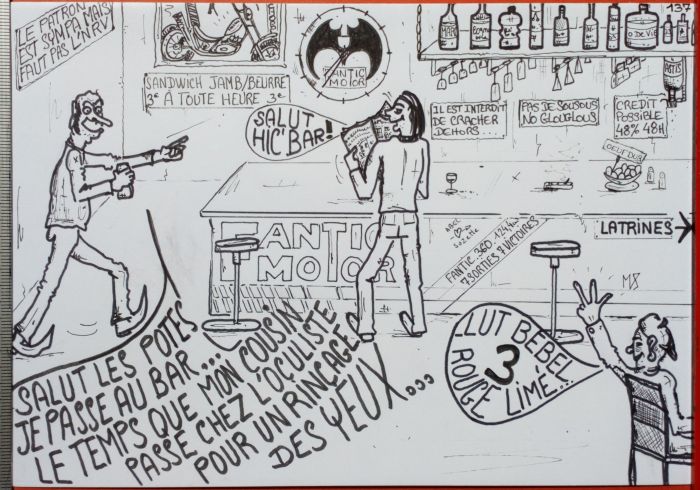 LE PATRON
EST SYMPA MAIS
FAUT PAS L'NRV
SANDWICH JAMB/BEURRE
3€ A TOUTE HEURE 3€
FANTIC
MOTOR
SALUT
HIC" BAR!
IL EST INTERDIT
DE CRACHER
DEHORS...
PAS DE SOUSOUS
NO GLOUGLOUS
CREDIT
POSSIBLE
48% 48H
137
O DE VIE
OEUF DUR
LATRINES
FANTIC
MOTOR
SUZETTE
FANTIC 360 124/4M
7 SORTIES 7 VICTOIRES
LUT BEBEL
3
ROUGE LIMÉ...
SALUT LES POTES
JE PASSE AU BAR ....
LE TEMPS QUE MON COUSIN
PASSE CHEZ L'OCULISTE
POUR UN RINÇAGE
DES YEUX...